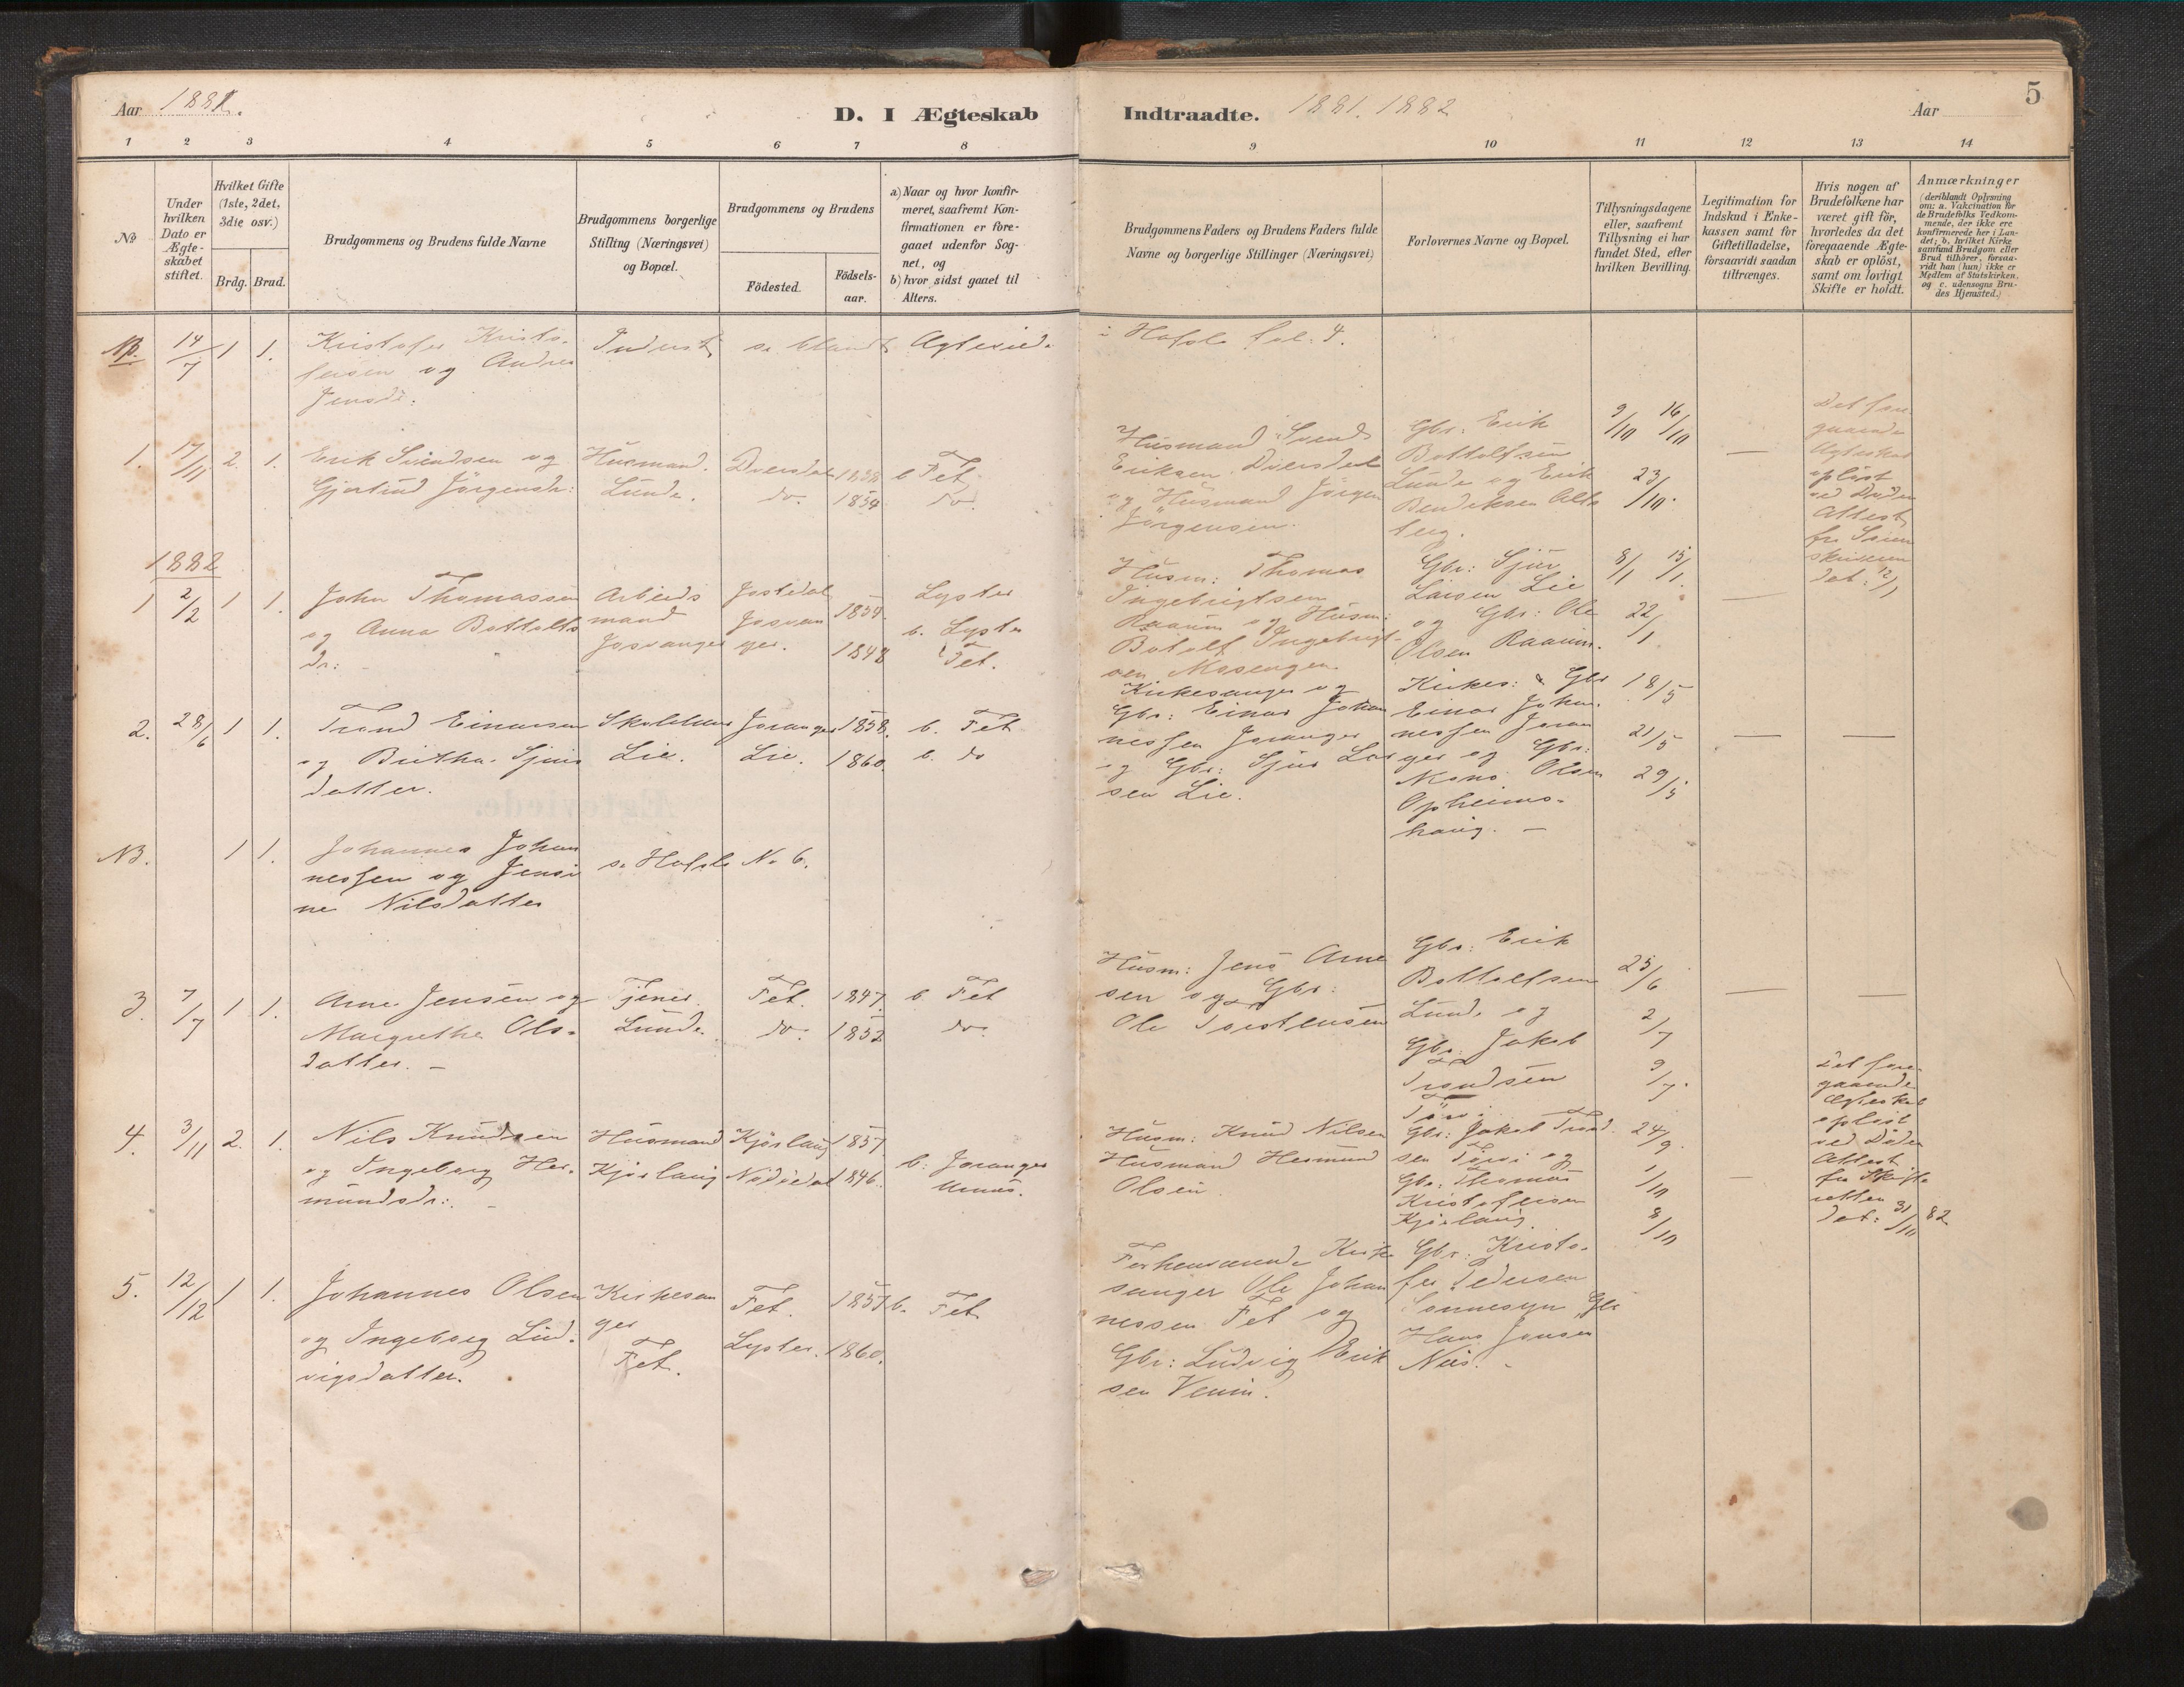 Aar 1881.
D. I Ægteskab
Indtraadte. 1881. 1882
Aar
5
1 2 3 4 5 6 7 8 9 10 11 12 13 14
No
Under hvilken Dato er Ægteskabet stiftet.
Hvilket Gifte (1ste, 2det, 3die osv.)
Brdg. Brud.
Brudgommens og Brudens fulde Navne
Brudgommens borgerlige Stilling (Næringsvei) og Bopæl.
Brudgommens og Brudens
Födested.
Födselsaar.
a) Naar og hvor konfirmeret, saafremt Konfirmationen er foregaaet udenfor Sognet, og
b) hvor sidst gaaet til Alters.
Brudgommens Faders og Brudens Faders fulde Navne og borgerlige Stillinger (Næringsvei)
Forlovernes Navne og Bopæl.
Tillysningsdagene eller, saafremt Tillysning ei har fundet Sted, efter hvilken Bevilling.
Legitimation for Indskud i Enkekassen samt for Giftetilladelse, forsaavidt saadan tiltrænges.
Hvis nogen af Brudefolkene har været gift för, hvorledes da det foregaaende Ægteskab er oplöst, samt om lovligt Skifte er holdt.
Anmærkninger (deriblandt Oplysning om: a. Vakcination for de Brudefolks Vedkommende, der ikke ere konfirmerede her i Landet; b. hvilket Kirkesamfund Brudgom eller Brud tilhörer, forsaavidt han (hun) ikke er Medlem af Statskirken, og c. udensogns Brudes Hjemsted.)
NB. 14/7 1 1. Kristofer Kristo-
fersen og
Jensd:
s. blandt
i Hafslo fol: 4.
1. 17/11 2. 1. Erik Svendsen og
Gjertrud Jörgensdr:
Husmand.
Lunde.
1854
b Fet
do.
Husmand Svend
Eriksen
og Husmand Jörgen
Jörgensen.
Gbr: Erik
Bottolfsen
Lunde og Erik
Bendiksen
9/10 16/10
23/10.
Det fore
gaaende
Ægteskab
oplöst
ved Döden
Attest
1882
1 2/2 1 1. John Thomassen
og Anna Bottolfs
dr: -
Arbeids
mand
Jostedal
1854.
1848
Lyster
b. Lyster
Fet.
Husm: Thomas
Ingebrigtsen
Raaum og Husm:
Botolf Ingebrigt-
sen Mosengen.
Gbr: Sjur
Larsen Lie
og Gbr: Ole
Olsen Raaum.
8/1 15/1.
22/1
2. 28/6 1 1. Trond Einarsen
og Brithe Sjurs
datter.
Lie.
Joranger
Lie.
1858.
1860.
b. Fet
b. do
Kirkesanger og
Gbr: Einar Johan
nessen Joranger
og Gbr: Sjur Lar
sen Lie.
Kirkes: & Gbr
Einar Johan-
nessen Joran
ger og Gbr:
Mons Olsen
Opheims-
haug. -
18/5
21/5
29/5
NB. 1 1. Johannes Johan
nessen og Jensi
ne Nilsdatter
s. Hafslo No 6.
3. 7/7 1 1. Arne Jensen og
Margrethe Ols-
datter. -
Tjener
Lunde.
Fet.
do.
1847.
1852
b. Fet
do.
Husm: Jens Arne
sen og Gbr:
Ole Torstensen
Gbr: Erik
Bottolfsen
Lunde og
Gbr: Jakob
Trondsen
25/6
2/7
9/7.
4. 3/11 2. 1. Nils Knudsen
og Ingeborg Her-
mundsdr: -
Husmand
Kjörlaug
Kjörlaug
1857.
1846.
b: Joranger
Urnæs.
Husm: Knud Nilsen
Husmand Hermund
Olsen.
Gbr: Jakob Trond
sen Törvi og
Gbr. Thomas
Kristofersen
Kjörlaug.
24/9.
1/10
8/10
Det fore-
gaaende
Ægteskab
oplöst
ved Döden
Attest
fra Skifte
retten
dat: 31/10 82
5. 12/12 1 1. Johannes Olsen
og Ingeborg Lud-
vigsdatter.
Kirkesan
ger
Fet.
Fet.
Lyster.
1857
1860.
b. Fet
Forhenværende Kirke
sanger Ole Johan
nessen Fet og
Gbr: Ludvig Erik
sen Venin.
Gbr: Kristo-
fer Pedersen
Hans Jensen